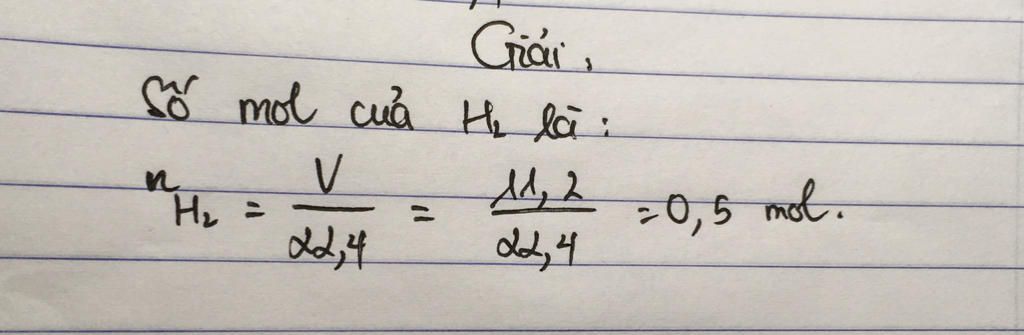 Giải,
Số mol của H₂ là:
n_H₂ = V/22,4 = 11,2/22,4 = 0,5 mol.